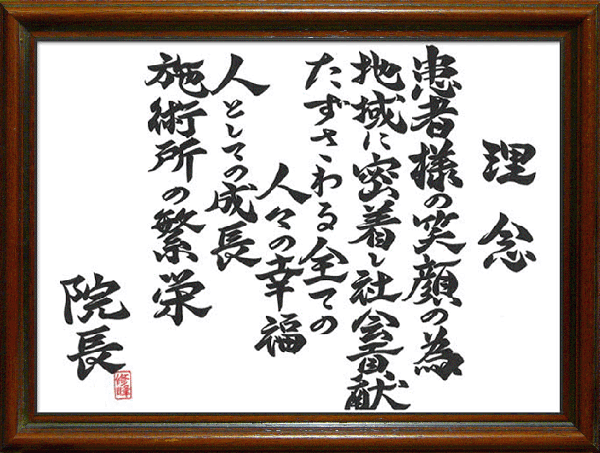 理念
患者様の笑顔の為
地域に密着し社会貢献
たずさわる全ての
人々の幸福
人としての成長
施術所の繁栄
院長